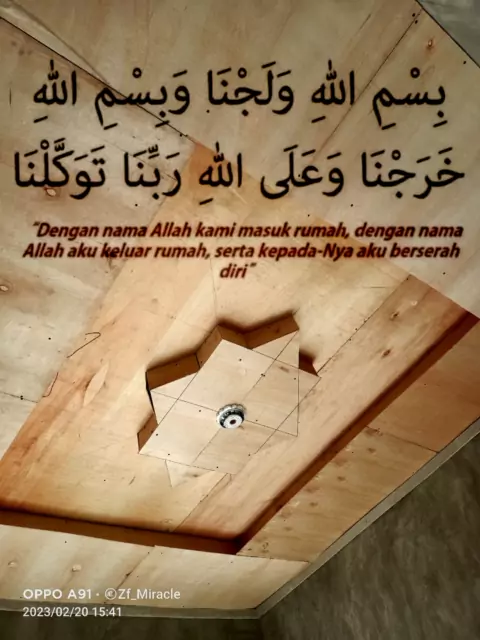 بِسْمِ اللهِ وَلَجْنَا وَبِسْمِ اللهِ
خَرَجْنَا وَعَلَى اللهِ رَبِّنَا تَوَكَّلْنَا
“Dengan nama Allah kami masuk rumah, dengan nama
Allah aku keluar rumah, serta kepada-Nya aku berserah
diri”
OPPO A91 · ©Zf_Miracle
2023/02/20 15:41